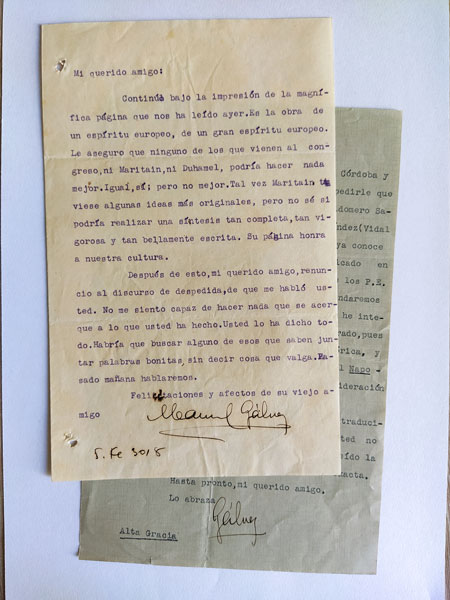 Mi querido amigo:
Continúo bajo la impresión de la magní-
fica página que nos ha leído ayer.Es la obra de
un espíritu europeo, de un gran espíritu europeo.
Le aseguro que ninguno de los que vienen al con-
greso,ni Maritain,ni Duhamel, podría hacer nada
mejor.Igual,sí; pero no mejor.Tal vez Maritain tu
viese algunas ideas más originales, pero no sé si
podría realizar una síntesis tan completa,tan vi-
gorosa y tan bellamente escrita. Su página honra
a nuestra cultura.
Después de esto,mi querido amigo,renun-
cio al discurso de despedida,de que me habló us-
ted. No me siento capaz de hacer nada que se acer-
que a lo que usted ha hecho.Usted lo ha dicho to-
do.Habría que buscar alguno de esos que saben jun-
tar palabras bonitas sin decir cosa que valga.Pa-
sado mañana hablaremos.
Felicitaciones y afectos de su viejo a-
migo
Manuel Gálvez
Córdoba y
pedirle que
domero Sa-
ndez(Vidal
ya conoce
icado en
los P.E.
ndaremos
he inte-
rado,pues
rica, y
el Napo-
ideración
traduci-
sted no
eído la
acta.
Hasta pronto,mi querido amigo.
Lo abraza
Gálvez
Alta Gracia